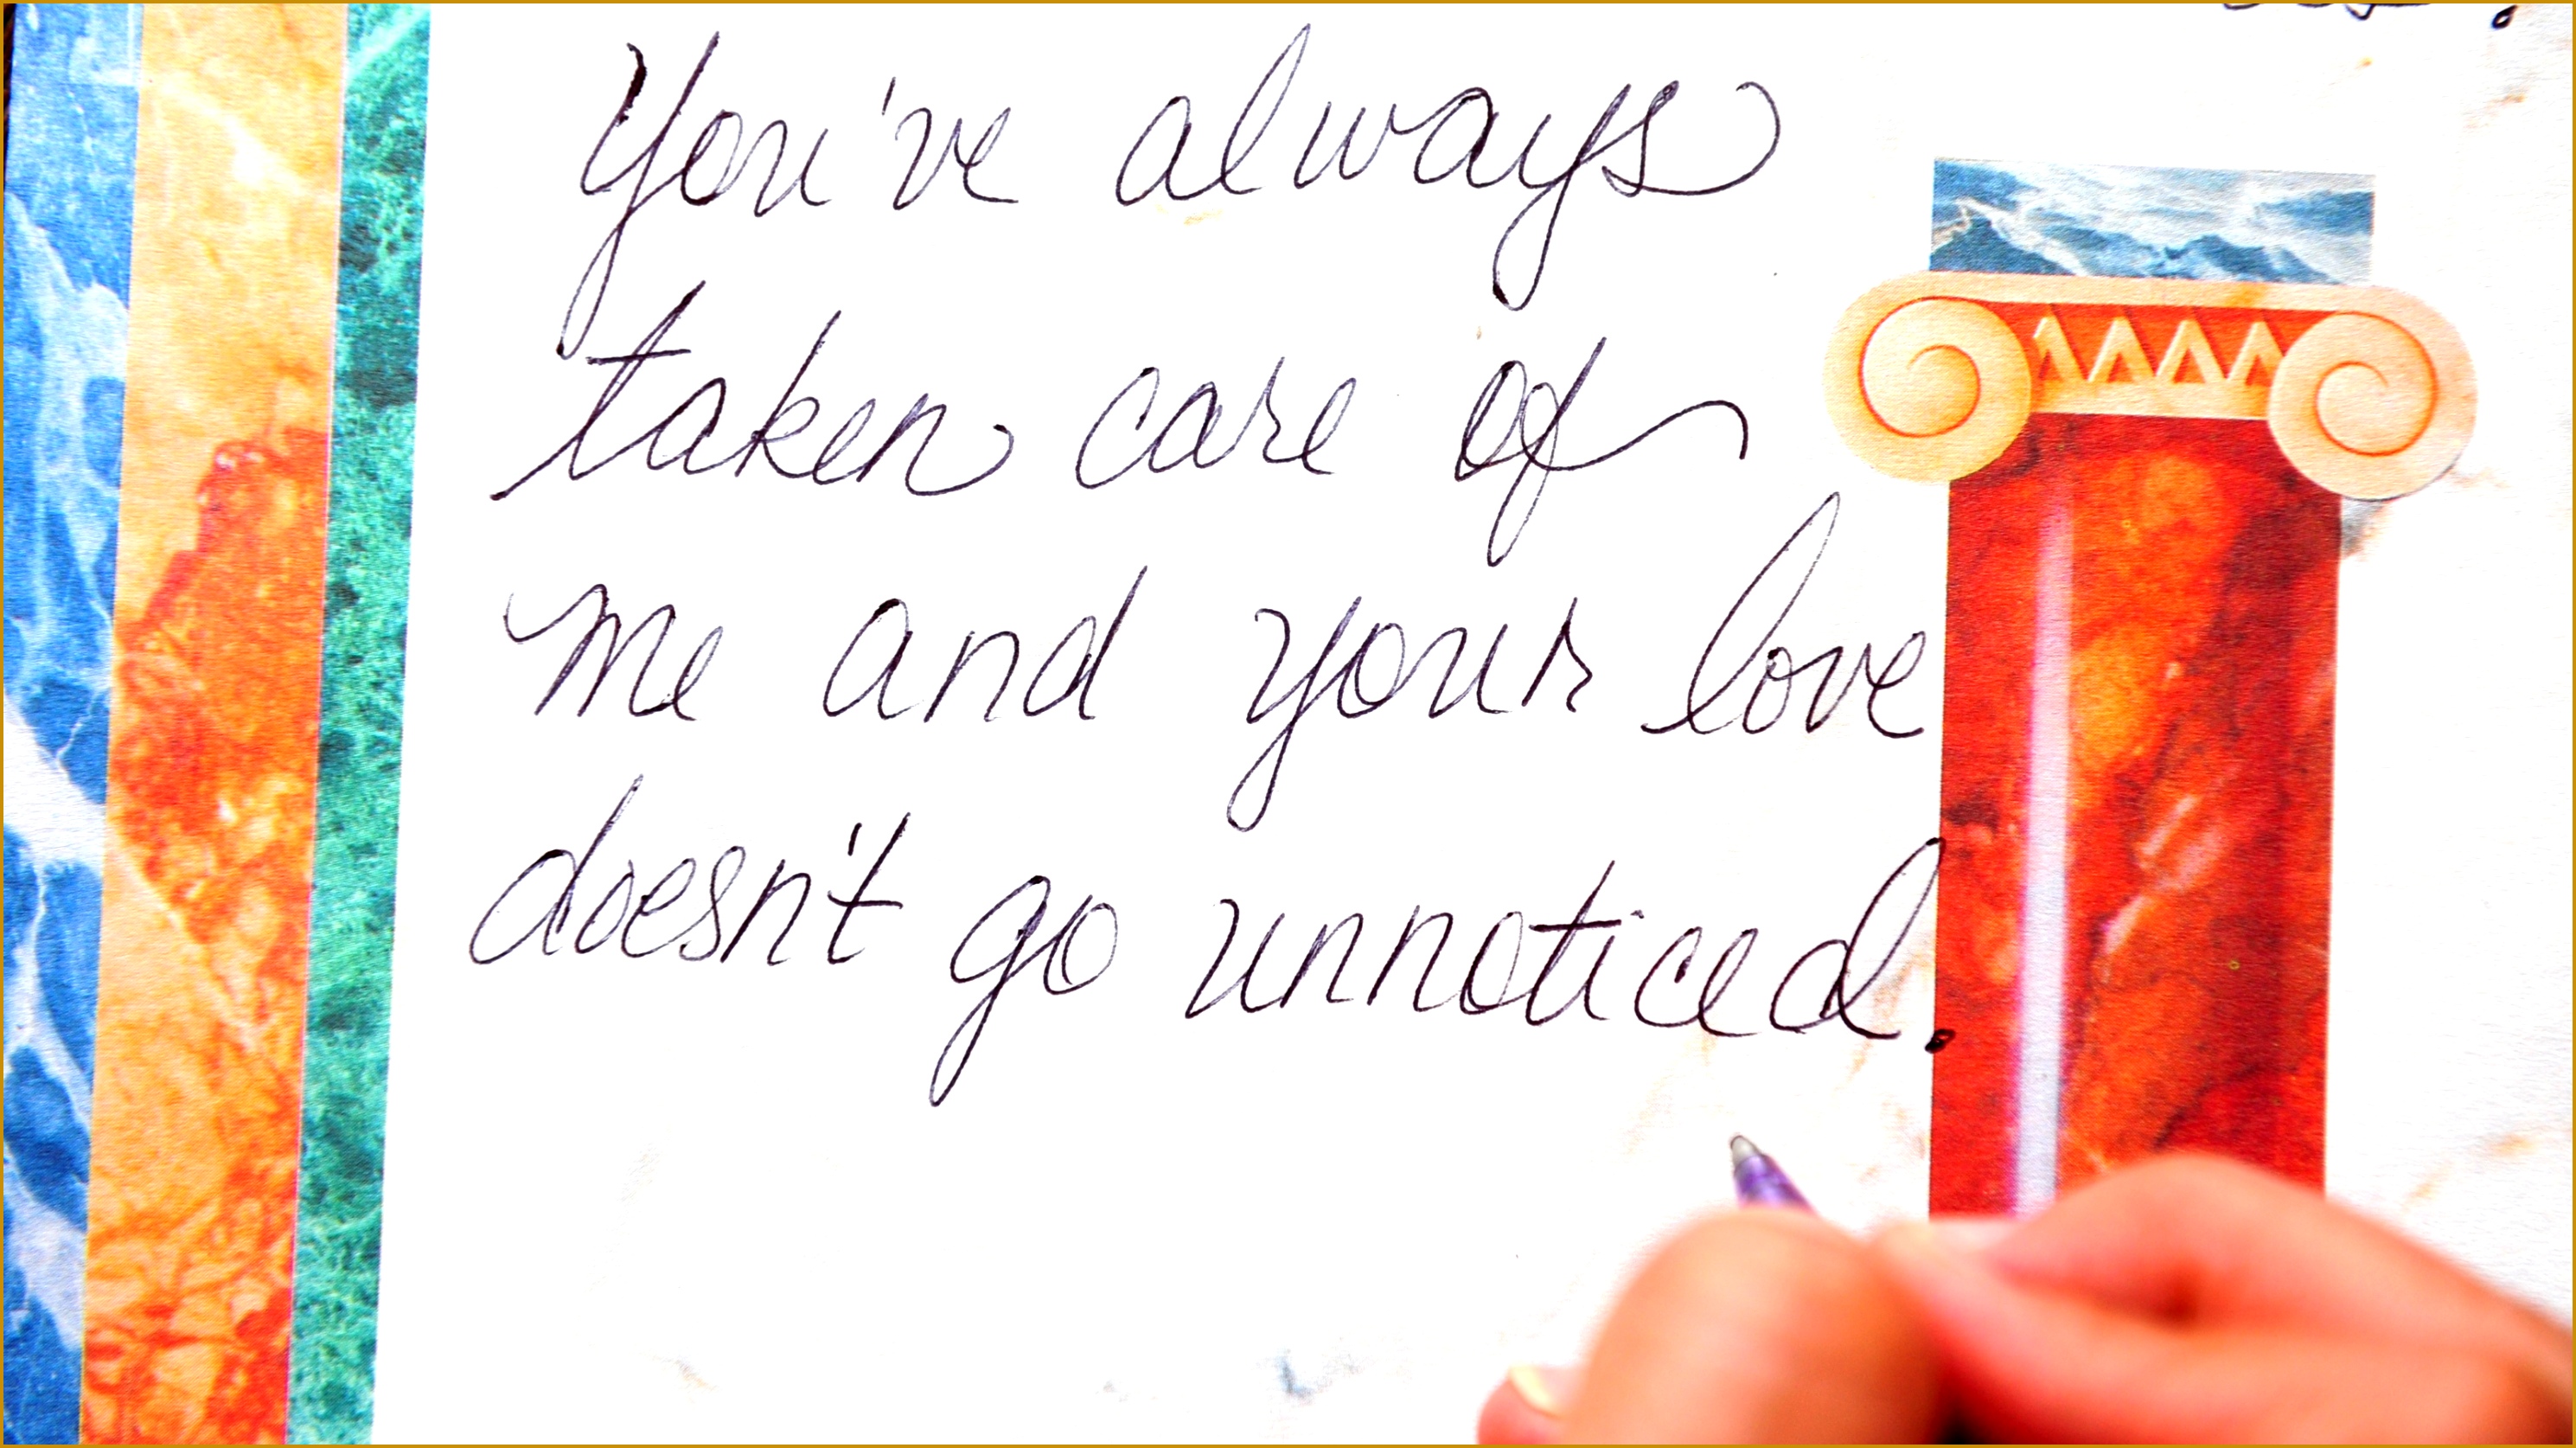 You've always
taken care of
me and your love
doesn't go unnoticed.